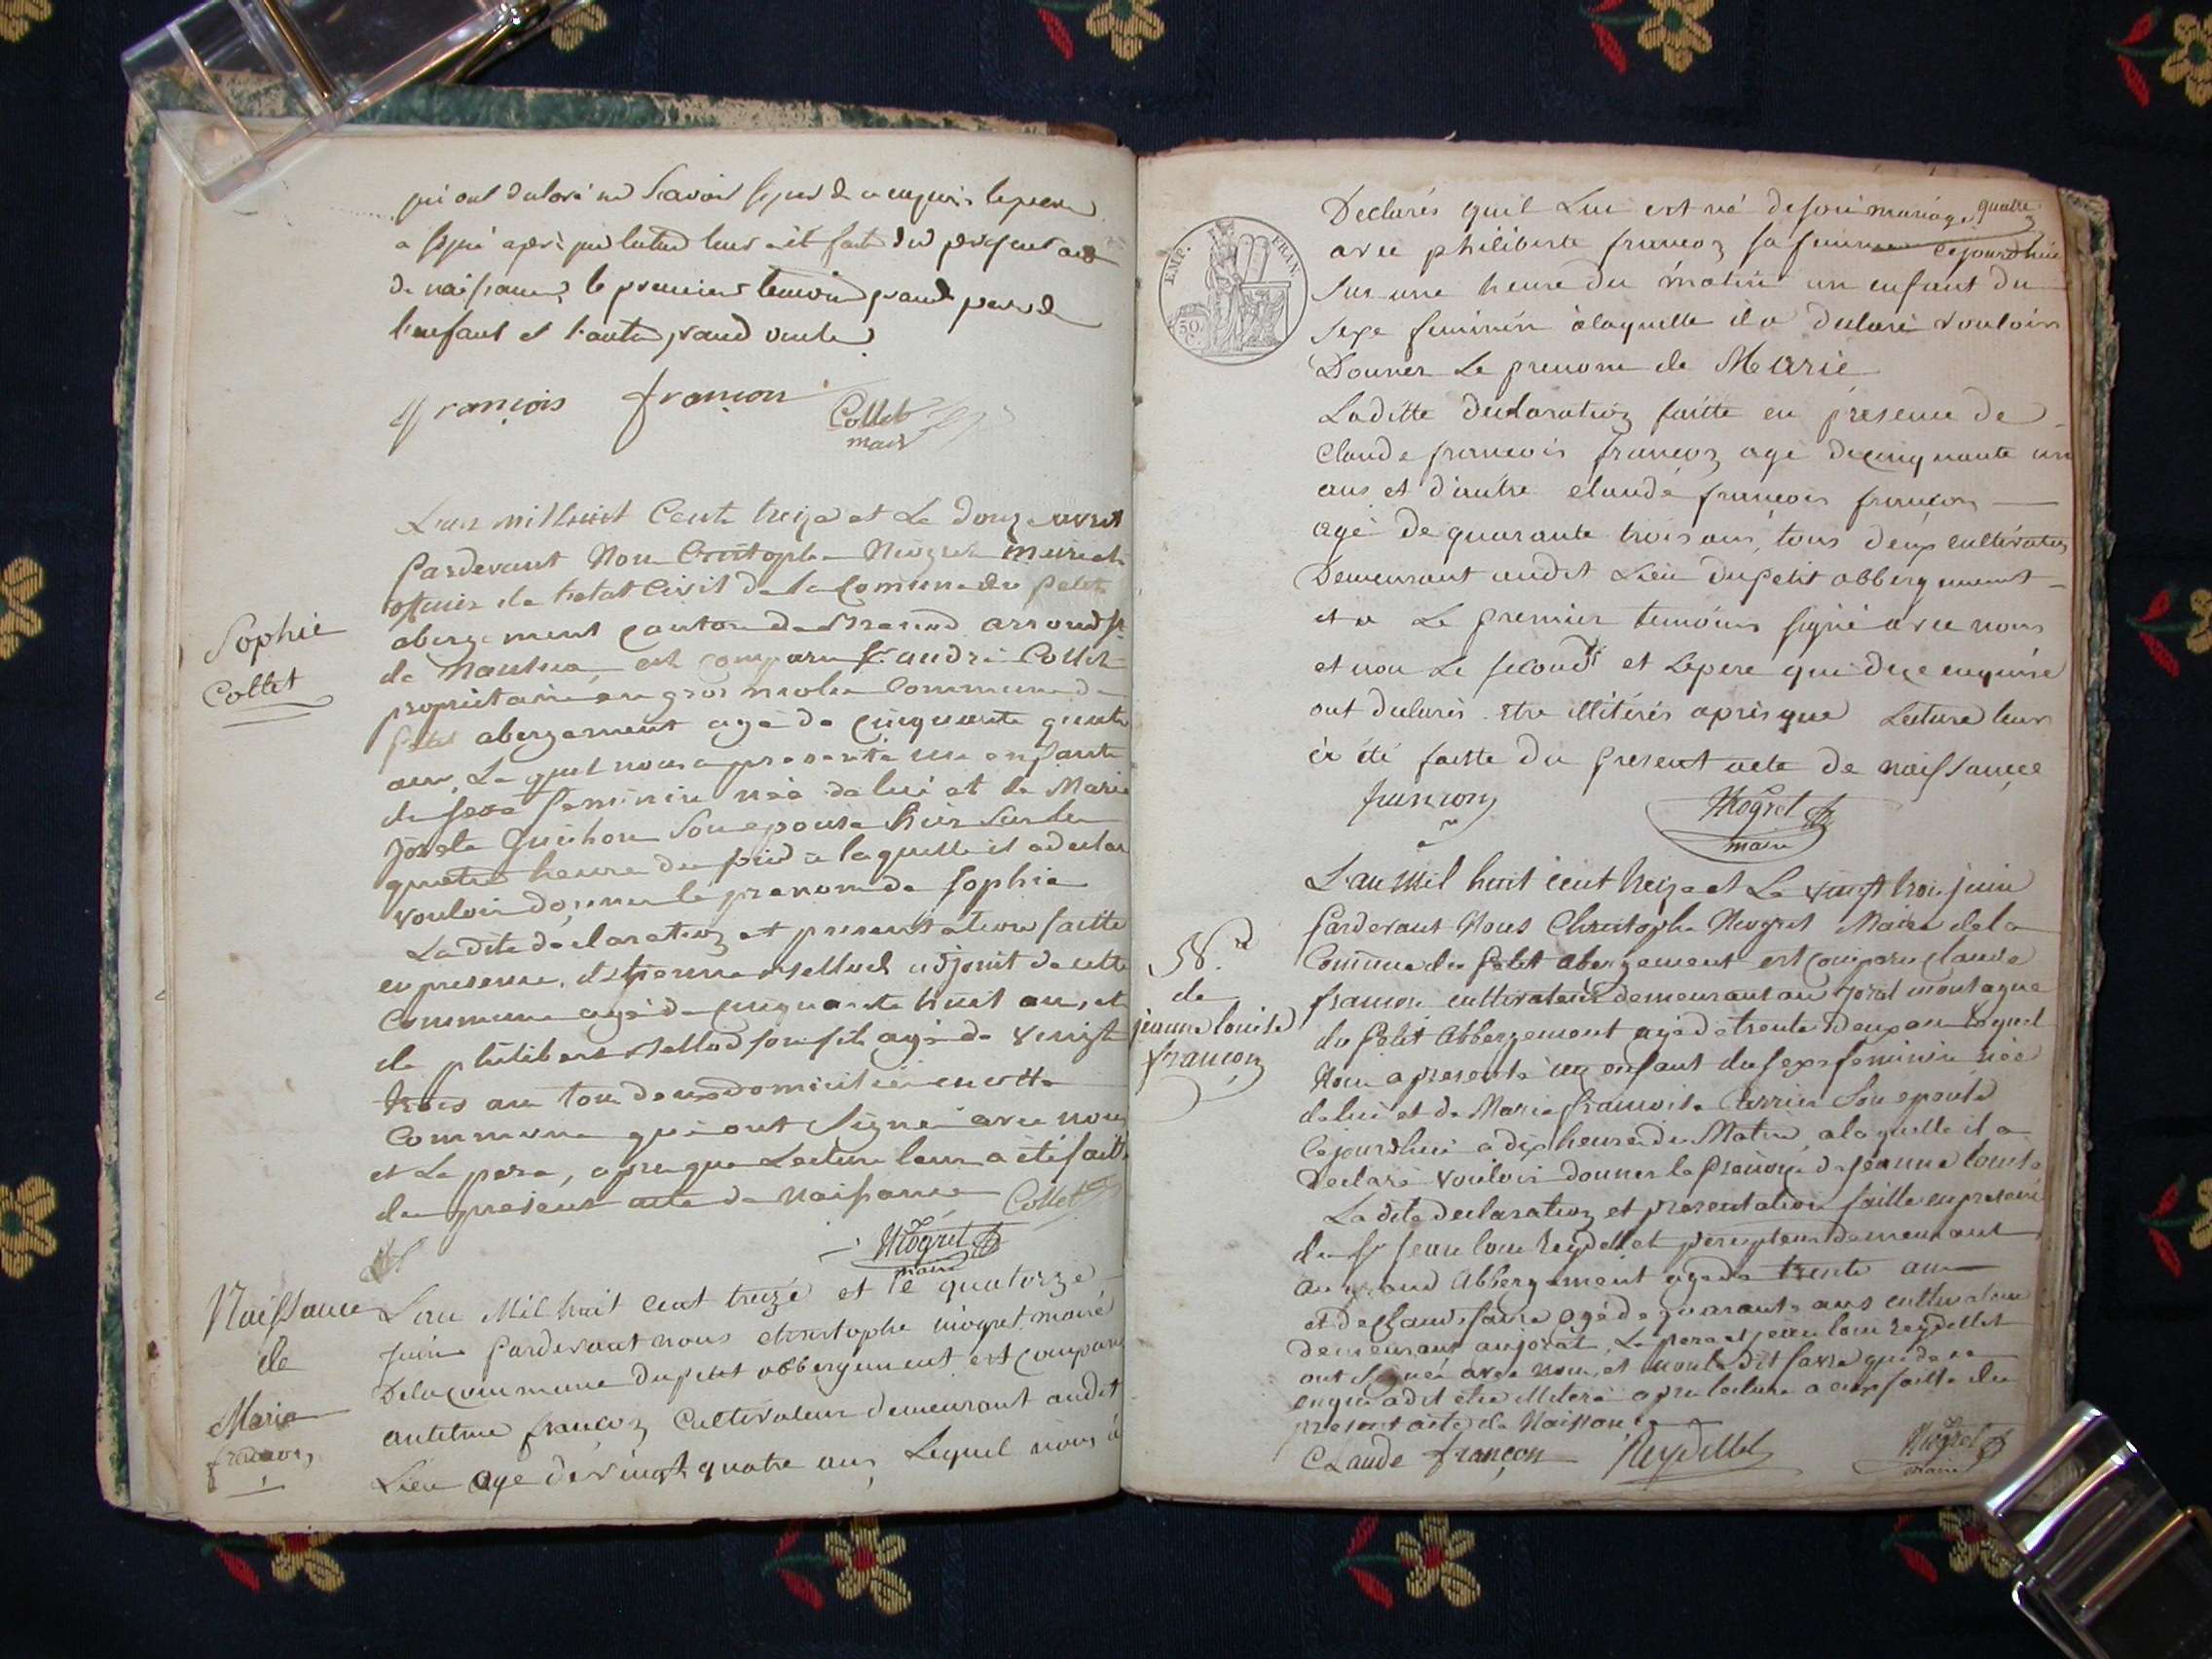 qui ont declaré ne Scavoir signer de ce enquis, le pere
a signé après que lecture leur a été faite du present acte
de naissance, le premier temoin grand pere de
l'enfant et l'autre grand oncle
françois françon Collet
maire
Sophie
Collet
L'an mil huit Cent treize et Le douze avril
Pardevant Nous Cristophe Niogret maire et
officier de l'etat Civil de la Commune du petit
abergement canton de Brenod arrondst
de Nantua, est comparu sr. andré Collet
proprietaire en gros Commune du
petit abergement agé de cinquante quatre
ans, Lequel nous a presenté une enfante
du sexe feminin née de lui et de Marie
Josete Guichon Son epouse hier Sur les
quatre heure du soir a laquelle il a declaré
vouloir donner le prenom de Sophie
La dite declaration et presentation faitte
en presence, d'Etienne Mellod adjoint de cette
Commune agé de cinquante huit ans, et
de philibert Mellod son fils agé de vingt
trois ans tous deux domiciliés en cette
Commune qui ont Signé avec nous
et Le pere, apres que Lecture leur a été faitte
du present acte de Naissance Collet
Niogret
maire
Naissance
de
Marie
françon
L'an Mil huit cent treize et le quatorze
Juin Pardevant nous christophe niogret maire
De la commune du petit abbergement est comparu
antelme françon Cultivateur demeurant audit
Lieu agé de vingt quatre ans, Lequel nous a
EMP. FRAN.
50 C.
Declarés quil Lui est né de son mariage quatre
avec philiberte françon sa femme cejourdhui
Sur une heure du matin un enfant du
sexe feminin à laquelle il a declaré vouloir
Donner Le prenom de Marie
Laditte declaration faitte en presence de
Claude françois françon agé de cinquante un
ans et d'autre claude françois françon
agé de quarante trois ans, tous deux cultivateurs
Demeurant audit Lieu du petit abbergement
et a Le premier temoins signé avec nous
et non Le second et Lepere qui de ce enquire
ont declarés etre illiterés après que Lecture leurs
à été faitte du present acte de naissance
françon Niogret
maire
N.ce
de
jeanne louise
françon
L'an Mil huit cent treize et Le vingt trois juin
Pardevant Nous Christophe Niogret Maire de la
Commune du Petit abergement est comparu claude
françon cultivateur demeurant au Jorat montagne
du Petit Abbergement agé de trente deux ans lequel
Nous a presenté un enfant du sexe feminin née
de lui et de Marie françoise Son epouse
Cejourdhui a dix heure du Matin, a laquelle il a
Declaré vouloir donner le Prenom de jeanne louise
La dite declaration et presentation faitte en presence
du sr jean loui Reydellet percepteur demeurant
au grand Abbergement agé de trente ans
et de Claude favre agé de quarante ans cultivateur
demeurant au jorat, Le pere et jean loui reydellet
ont Signé avec nous, et non le dit favre qui de ce
enquis a dit etre illiteré apres lecture a eux faitte du
present acte de Naissance
Claude françon Reydellet Niogret
maire